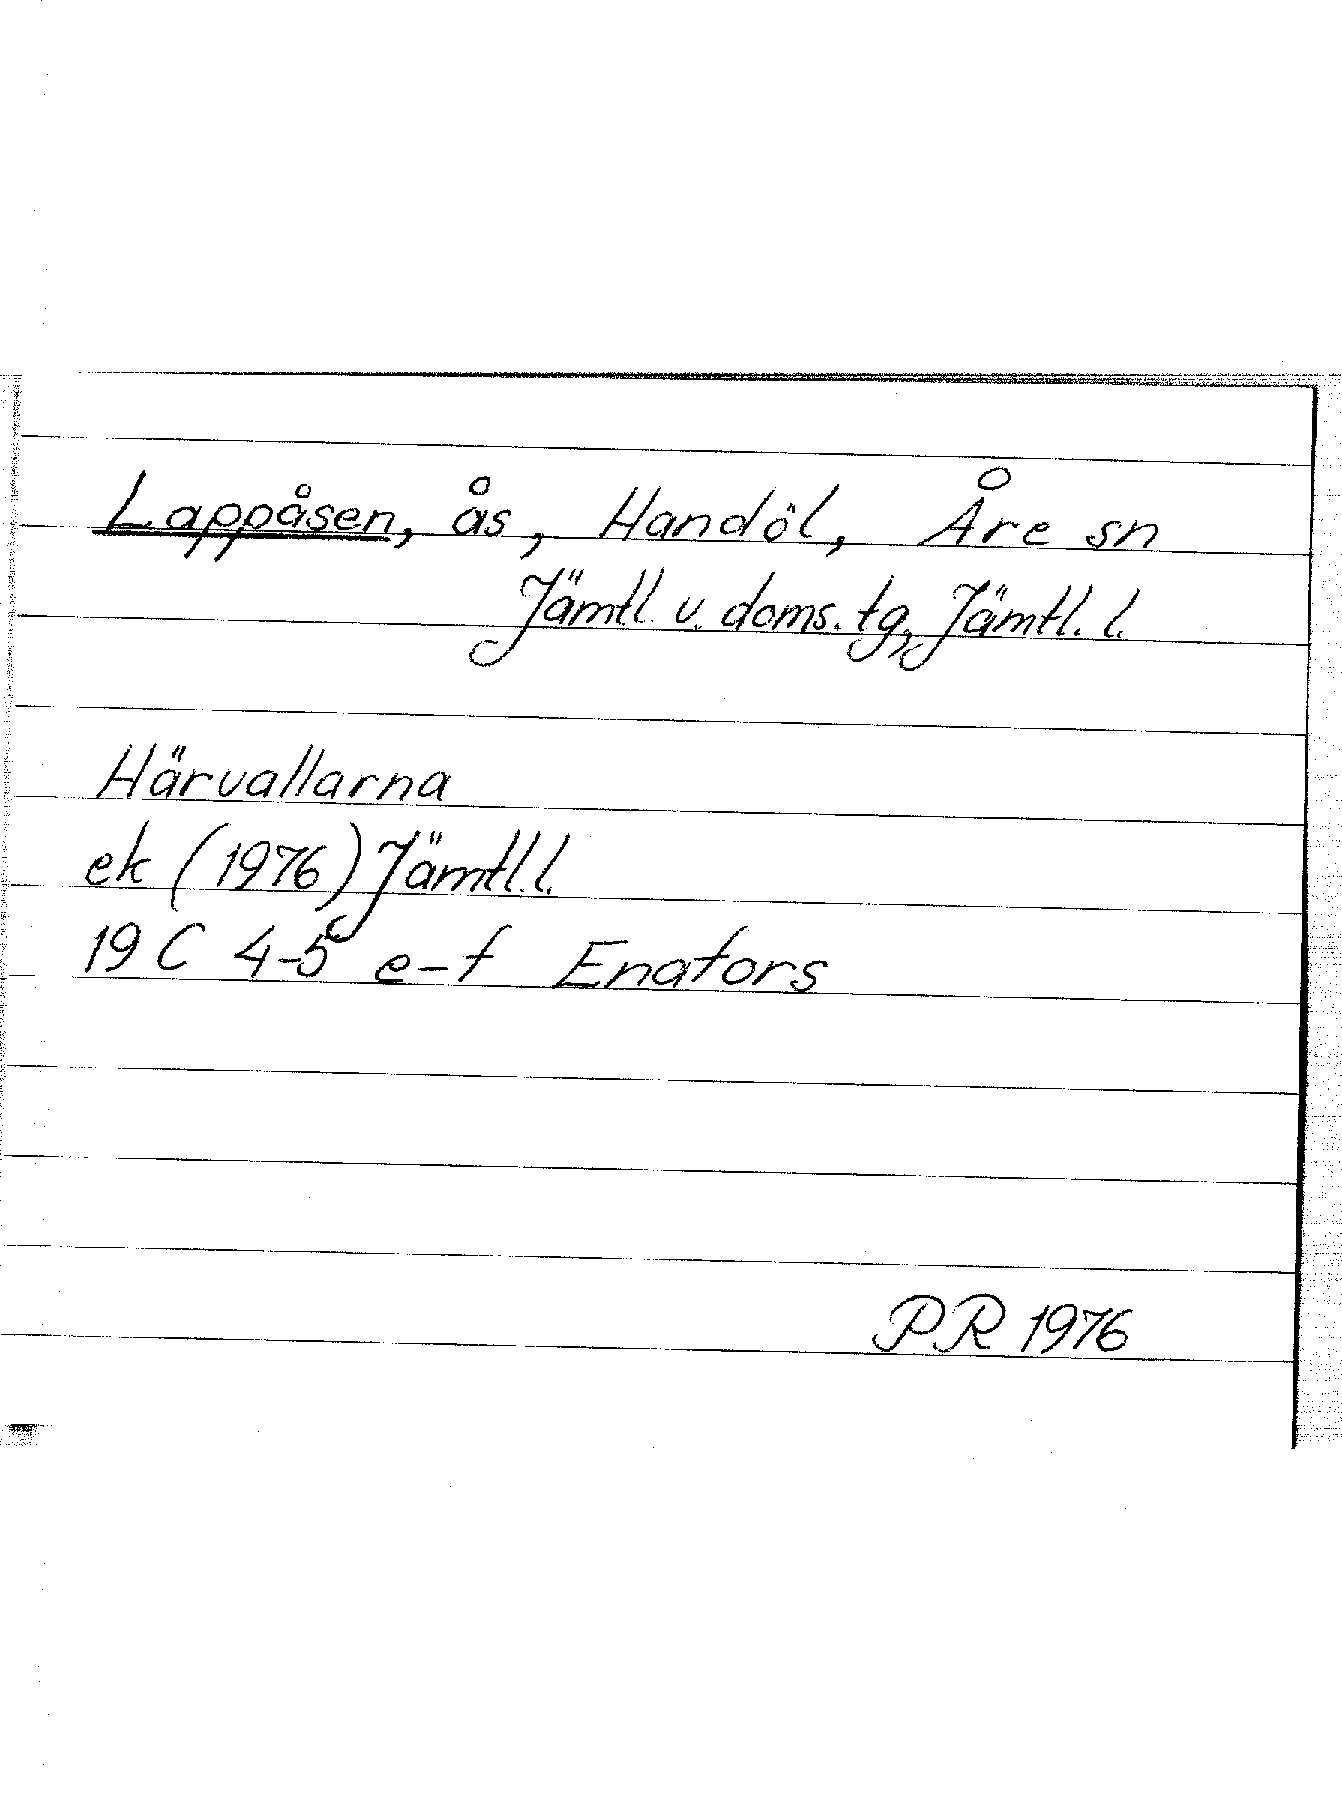 Lappåsen, ås, Handöl, Åre sn
Jämtl. v. doms. tg, Jämtl. l.
Härvallarna
ek (1976) Jämtl. l.
19 C 4-5 e-f Enafors
PR 1976